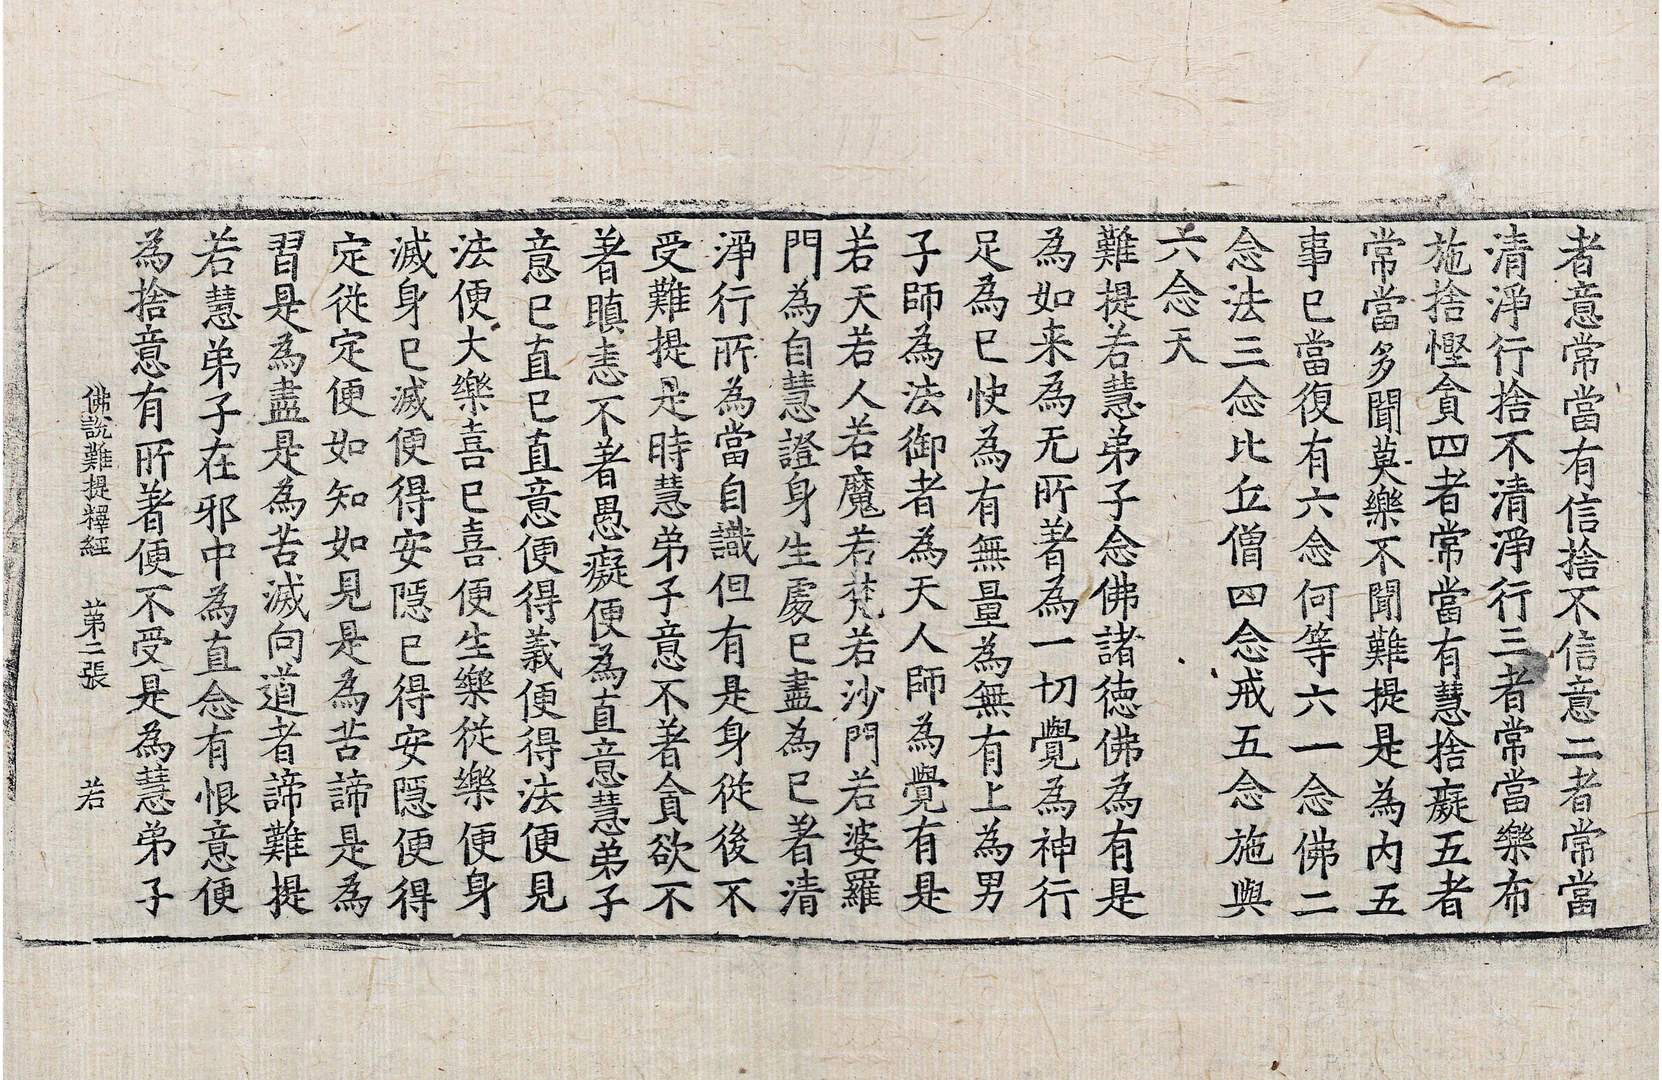 者意常當有信捨不信意二者常當
清淨行捨不清淨行三者常當樂布
施捨慳貪四者常當有慧捨癡五者
常當多聞莫樂不聞難提是為內五
事已當復有六念何等六一念佛二
念法三念比丘僧四念戒五念施與
六念天
難提若慧弟子念佛諸德佛為有是
為如来為无所著為一切覺為神行
足為已快為有無量為無有上為男
子師為法御者為天人師為覺有是
若天若人若魔若梵若沙門若婆羅
門為自慧證身生處已盡為已著清
淨行所為當自識但有是身從後不
受難提是時慧弟子意不著貪欲不
著瞋恚不著愚癡便為直意慧弟子
意已直已直意便得義便得法便見
法便大樂喜已喜便生樂從樂便身
滅身已滅便得安隱已得安隱便得
定從定便如知如見是為苦諦是為
習是為盡是為苦滅向道者諦難提
若慧弟子在邪中為直念有恨意便
為捨意有所著便不受是為慧弟子
佛說難提釋經 第二張 若